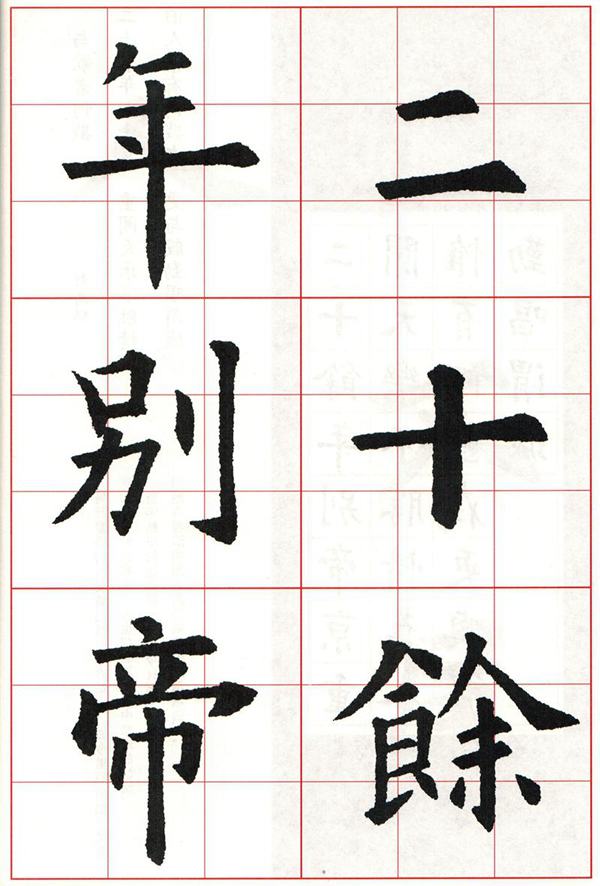 二十餘
年别帝